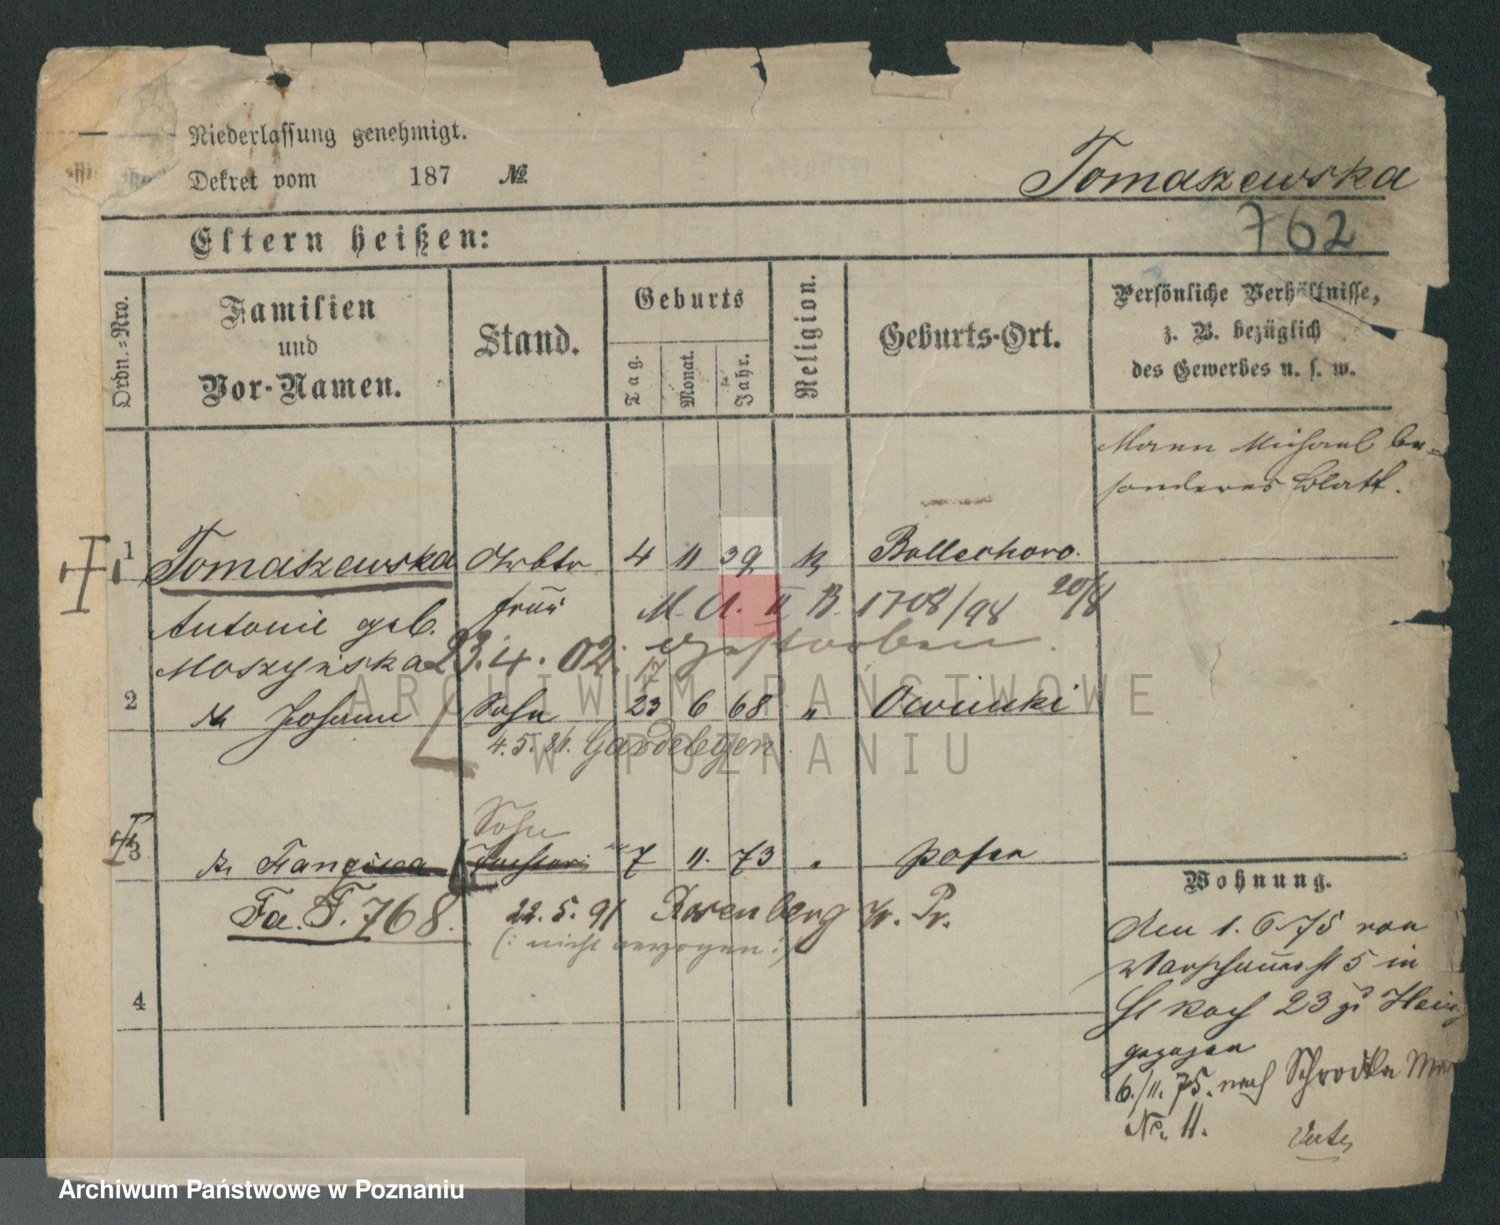 Niederlassung genehmigt.
Dekret vom 187 №
Tomaszewska
762
Eltern heißen:
Ordn.-Nro.
Familien
und
Vor-Namen.
Stand.
Geburts
Tag.
Monat.
Jahr.
Religion.
Geburts-Ort.
Persönliche Verhältnisse,
z. B. bezüglich
des Gewerbes u. s. w.
Mann Michael be-
sonderes Blatt.
1 Tomaszewska Arbtr 4 11 39 k
frau M. A. II B. 1708/98 20/8
Antonie geb.
Moszyńska 23.4.02. gestorben
2 Johann Sohn 23 6 68 " Owinski
4.5.86. Gardelegen
Sohn
3 Franzisca 7 11. 73 " Posen
Fa. F. 768. 22.5.91 Rosenberg W. Pr.
(: nicht verzogen :)
4
Wohnung.
Am 1.6.75 von
5 in
23 zu
gezogen
6./11.75. nach Schrodka
No. 11.
ARCHIWUM PAŃSTWOWE
W POZNANIU
Archiwum Państwowe w Poznaniu